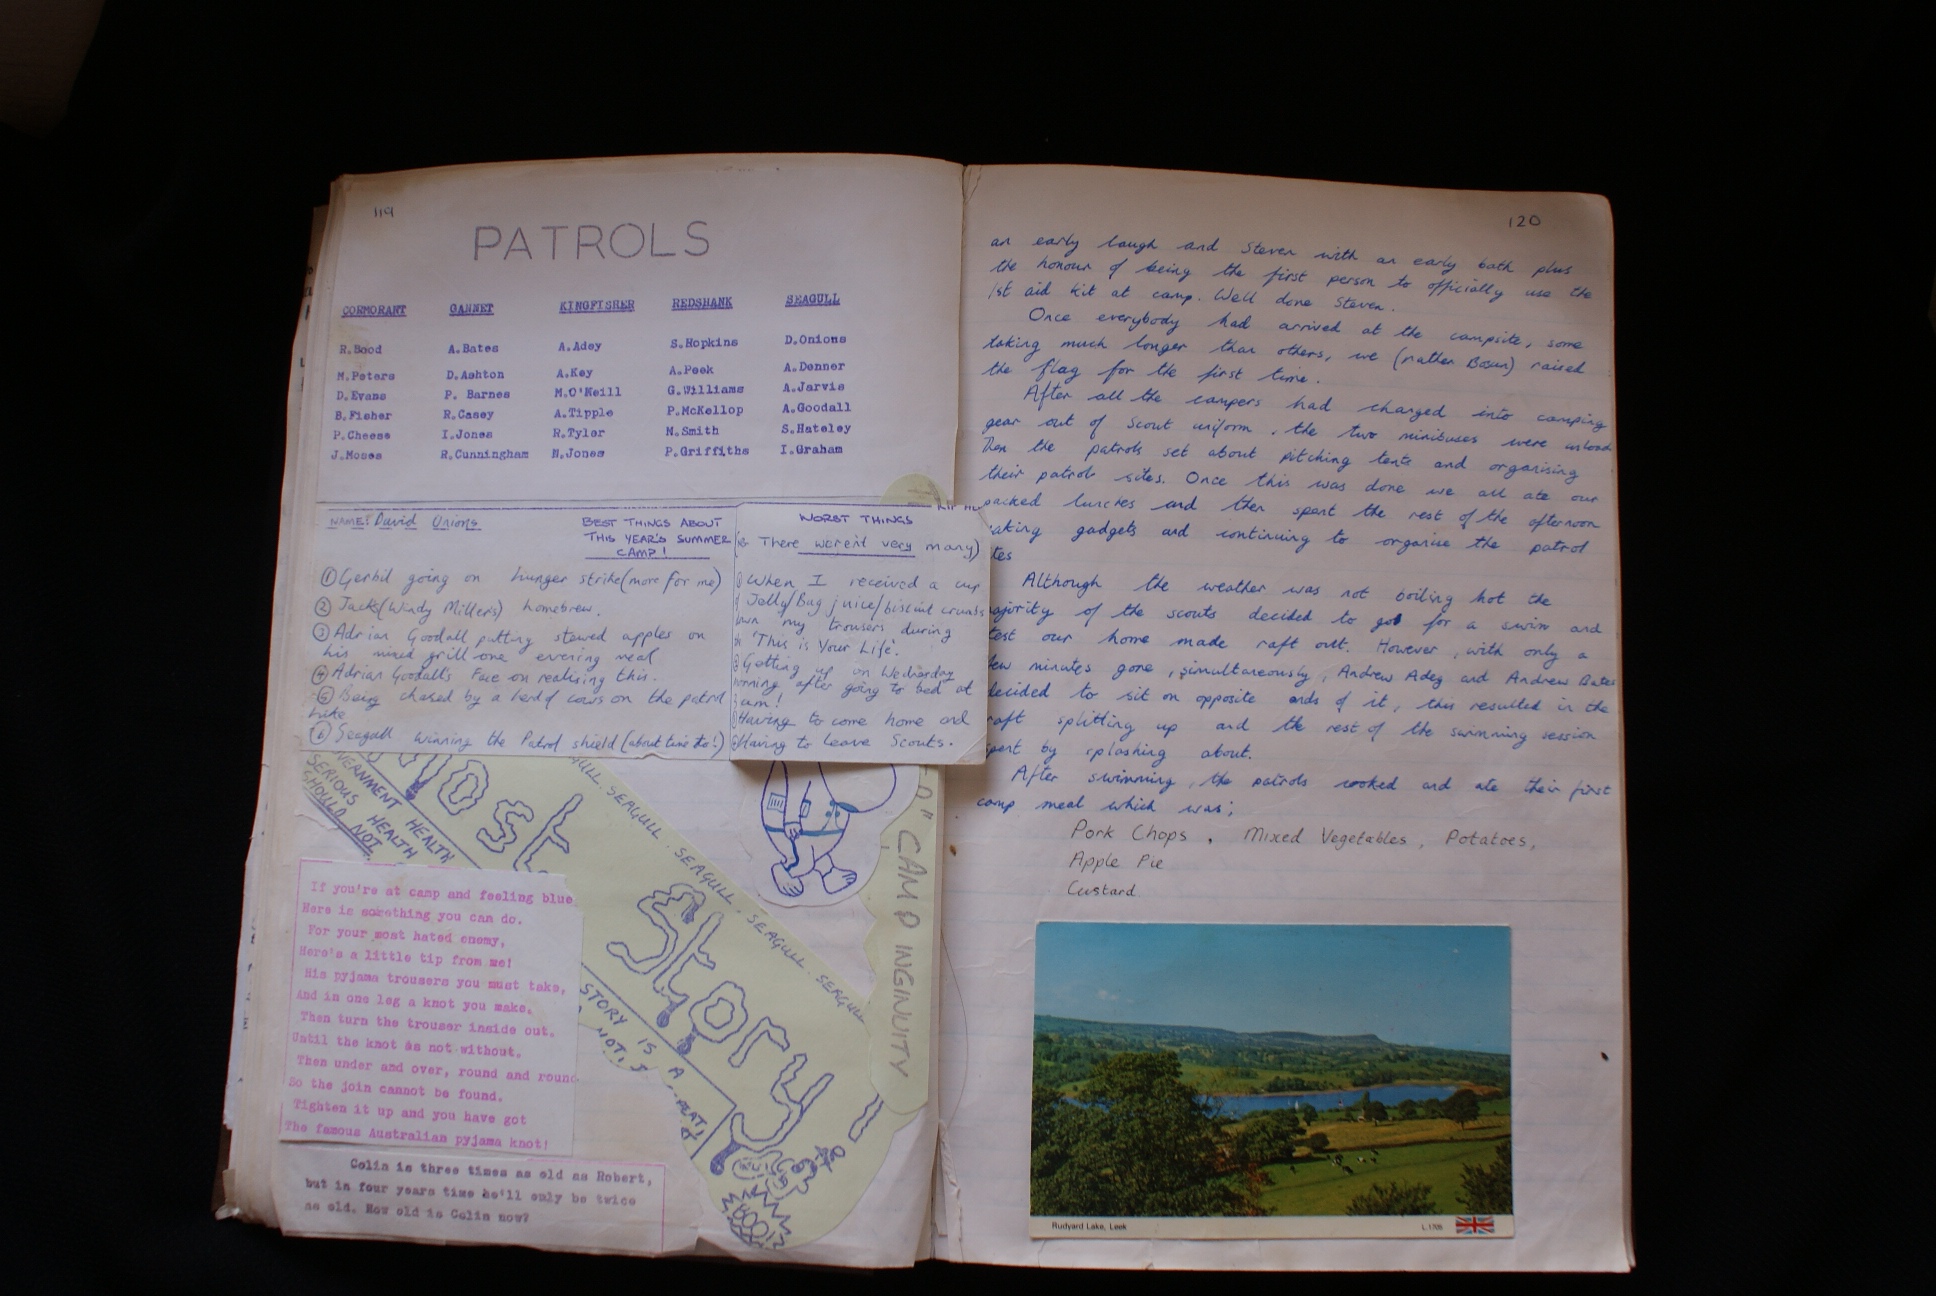 119
PATROLS
CORMORANT GANNET KINGFISHER REDSHANK SEAGULL
R.Bood A.Bates A.Adey S.Hopkins D.Onions
M.Peters D.Ashton A.Key A.Peek A.Denner
D.Evans P. Barnes M.O'Neill G.Williams A.Jarvis
B.Fisher R.Casey A.Tipple P.McKellop A.Goodall
P.Cheese I.Jones R.Tyler N.Smith S.Hateley
J.Moses R.Cunningham N.Jones P.Griffiths I.Graham
NAME: David Onions
BEST THINGS ABOUT
THIS YEAR'S SUMMER
CAMP!
① Gerbil going on hunger strike (more for me)
② Jacks (Windy Millers) homebrew.
③ Adrian Goodall putting stewed apples on
his mixed grill one evening meal
④ Adrian Goodall's Face on realising this.
⑤ Being chased by a herd of cows on the patrol
hike
⑥ Seagull winning the Patrol shield (about time to!)
WORST THINGS
There weren't very many)
When I received a cup
Jelly/Bag juice/biscuit crumbs
my trousers during
'This is Your Life'.
Getting up on Wednesday
morning after going to bed at
am!
Having to come home and
Having to leave Scouts.
GOVERNMENT HEALTH
SERIOUS HEALTH
SHOULD NOT
SEAGULL. SEAGULL. SEAGULL. SEAGULL. SEAGULL. SEAGULL
Story
STORY IS A
NOT
CAMP INGINUITY
If you're at camp and feeling blue
Here is something you can do.
For your most hated enemy,
Here's a little tip from me!
His pyjama trousers you must take,
And in one leg a knot you make.
Then turn the trouser inside out.
Until the knot is not without.
Then under and over, round and round
So the join cannot be found.
Tighten it up and you have got
The famous Australian pyjama knot!
Colin is three times as old as Robert,
but in four years time he'll only be twice
as old. How old is Colin now?
120
an early laugh and Steven with an early bath plus
the honour of being the first person to officially use the
1st aid kit at camp. Well done Steven.
Once everybody had arrived at the campsite, some
taking much longer than others, we (rather Bosun) raised
the flag for the first time.
After all the campers had changed into camping
gear out of Scout uniform, the two minibuses were unload
Then the patrols set about pitching tents and organising
their patrol sites. Once this was done we all ate our
packed lunches and then spent the rest of the afternoon
making gadgets and continuing to organise the patrol
Although the weather was not boiling hot the
majority of the scouts decided to go for a swim and
test our home made raft out. However, with only a
few minutes gone, simultaneously, Andrew Adey and Andrew Bates
decided to sit on opposite ends of it, this resulted in the
raft splitting up and the rest of the swimming session
spent by splashing about.
After swimming, the patrols cooked and ate their first
camp meal which was;
Pork Chops, Mixed Vegetables, Potatoes,
Apple Pie
Custard
Rudyard Lake, Leek
L.1705